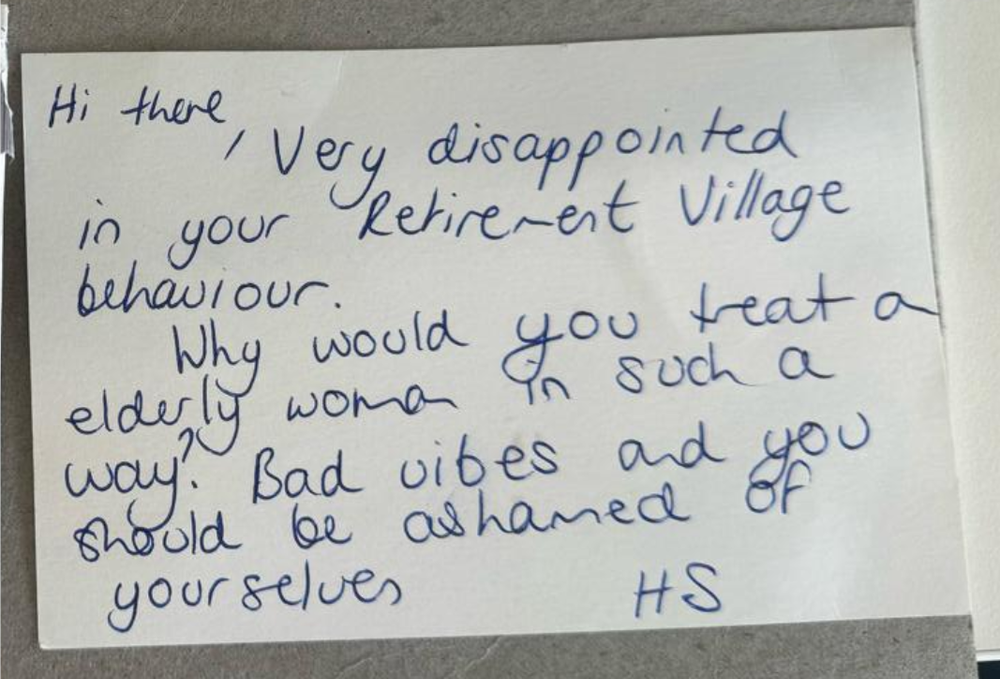 Hi there
, Very disappointed
in your Retirement Village
behaviour.
Why would you treat a
elderly woman in such a
way? Bad vibes and you
should be ashamed of
yourselves HS